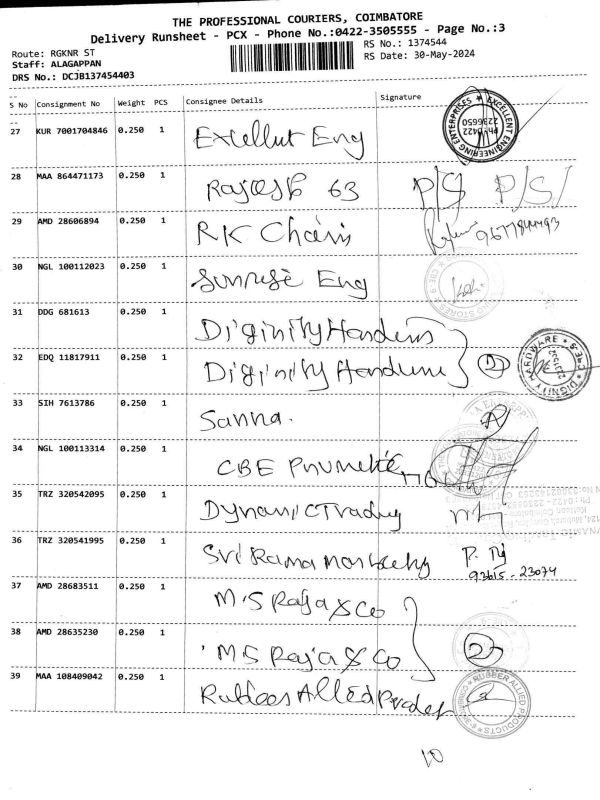 THE PROFESSIONAL COURIERS, COIMBATORE
Delivery Runsheet - PCX - Phone No.:0422-3505555 - Page No.:3
Route: RGKNR ST
RS No.: 1374544
Staff: ALAGAPPAN
RS Date: 30-May-2024
DRS No.: DCJB137454403
S No Consignment No Weight PCS Consignee Details Signature
27 KUR 7001704846 0.250 1 Excellut Eng
EXCELLENT ENGINEERING ENTERPRISES Ph:0422 2236650
28 MAA 864471173 0.250 1 Rajesh 63 P/S P/S/
29 AMD 28606894 0.250 1 RK Chains
30 NGL 100112023 0.250 1 Sunrise Eng
31 DDG 681613 0.250 1 Diginity
32 EDQ 11817911 0.250 1 Diginity 2
DIGNITY HARDWARE CBE-9
33 SIH 7613786 0.250 1 Sanna.
34 NGL 100113314 0.250 1 CBE
35 TRZ 320542095 0.250 1 Dynamic Trading
36 TRZ 320541995 0.250 1 Sri Rama
93615-23074
37 AMD 28683511 0.250 1 M.S Raja & Co
38 AMD 28635230 0.250 1 M S Raja & Co 2
39 MAA 108409042 0.250 1 Allied
RUBBER ALLIED PRODUCTS
10